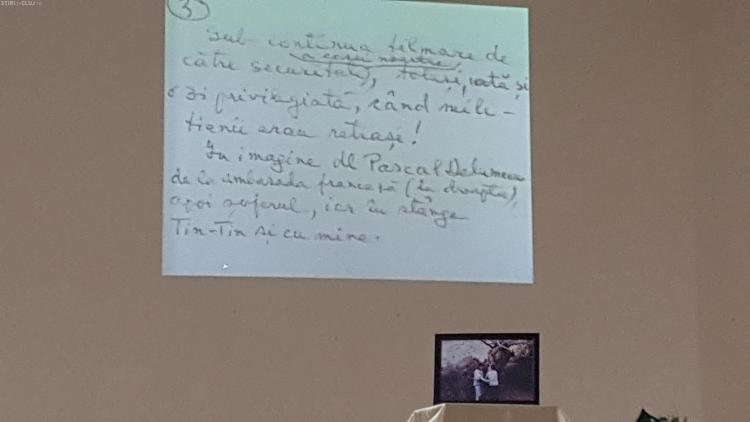 STIRI de CLUJ.ro
3
Sub continua filmare de
a casei noastre,
către securitate), totuși, iată și
o zi privilegiată, când mili-
țienii erau retrași!
În imagine dl Pascal Delumeau
de la ambasada franceză (în dreapta),
apoi șoferul, iar în stânga
Tin-Tin și cu mine.